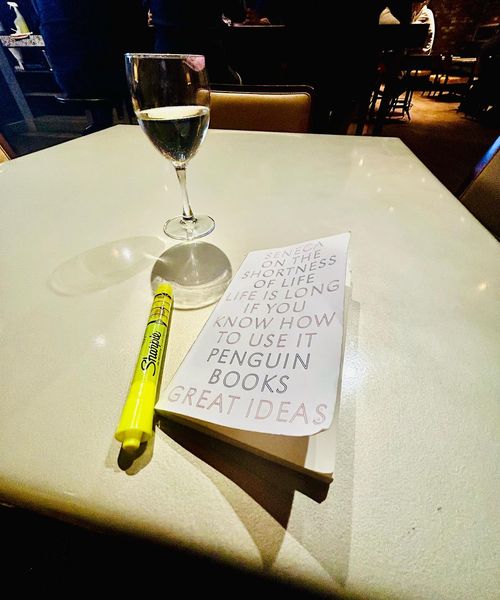 SENECA
ON THE
SHORTNESS
OF LIFE
LIFE IS LONG
IF YOU
KNOW HOW
TO USE IT
PENGUIN
BOOKS
GREAT IDEAS
Sharpie